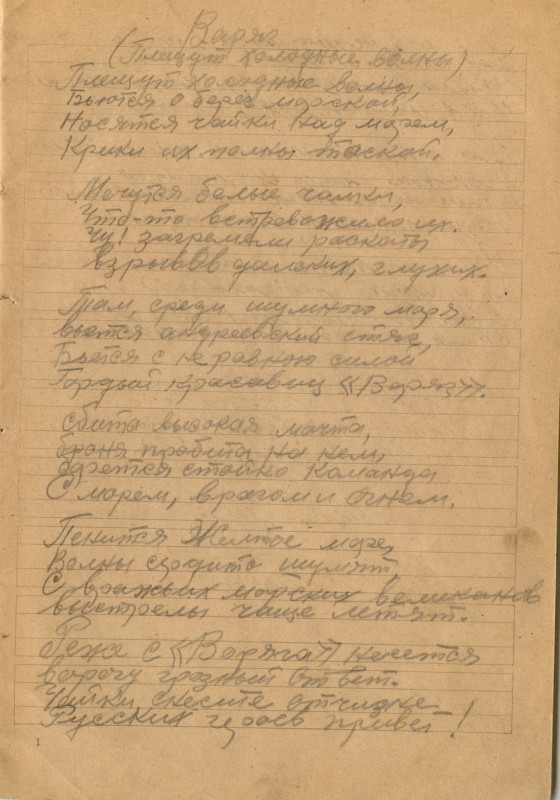 Варяг
(Плещут холодные волны)
Плещут холодные волны,
Бьются о берег морской,
Носятся чайки над морем,
Крики их полны таской.
Мечутся белые чайки,
Что-то встревожило их.
Чу! загремели раскаты
Взрывов далеких, глухих.
Там, среди шумного моря,
вьется андреевский стяг,
Бьется с неравною силой
Гордый красавиц «Варяг».
сбита высокая мачта,
броня пробита на нем,
борется стойко команда
С морем, врагом и огнем.
Пенится Желтое море,
Волны сердито шумят,
С вражьих морских великанов
выстрелы чаще летят.
Реже с «Варяга» несется
ворогу грозный ответ.
Чайки, снесите отчизне
Русских героев привет!
1